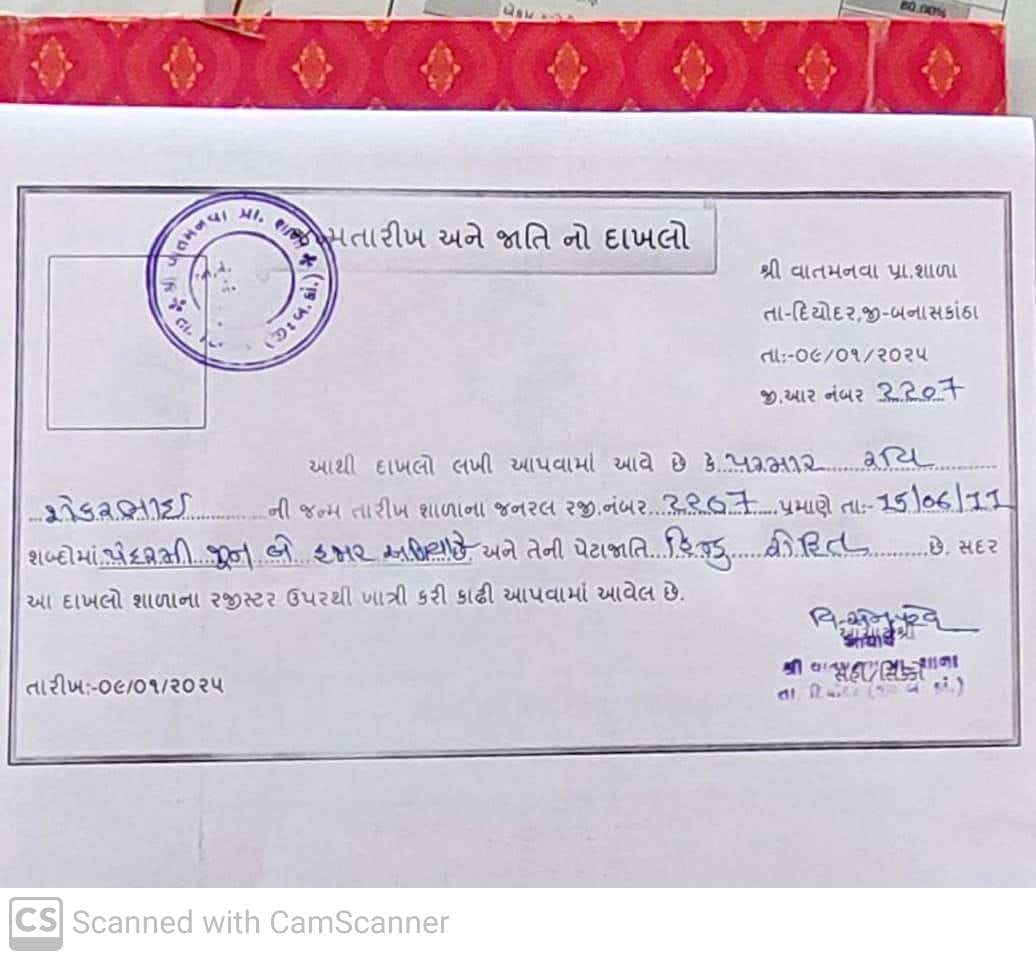 80.00%
શ્રી વાતમનવા પ્રા. શાળા
મતારીખ અને જાતિ નો દાખલો
શ્રી વાતમનવા પ્રા.શાળા
તા-દિયોદર,જી-બનાસકાંઠા
તા:-૦૯/૦૧/૨૦૨૫
જી.આર નંબર 2207
આથી દાખલો લખી આપવામાં આવે છે કે પરમાર રવિ
શંકરભાઈ ની જન્મ તારીખ શાળાના જનરલ રજી.નંબર 2207 પ્રમાણે તા:- 15/06/11
શબ્દોમાં પંદરમી જૂન બે હજાર અગિયાર અને તેની પેટાજાતિ હિન્દુ છે. સદર
આ દાખલો શાળાના રજીસ્ટર ઉપરથી ખાત્રી કરી કાઢી આપવામાં આવેલ છે.
આચાર્યશ્રી
આચાર્ય
સહી/સિક્કો
શ્રી શાળા
તારીખ:-૦૯/૦૧/૨૦૨૫
CS Scanned with CamScanner